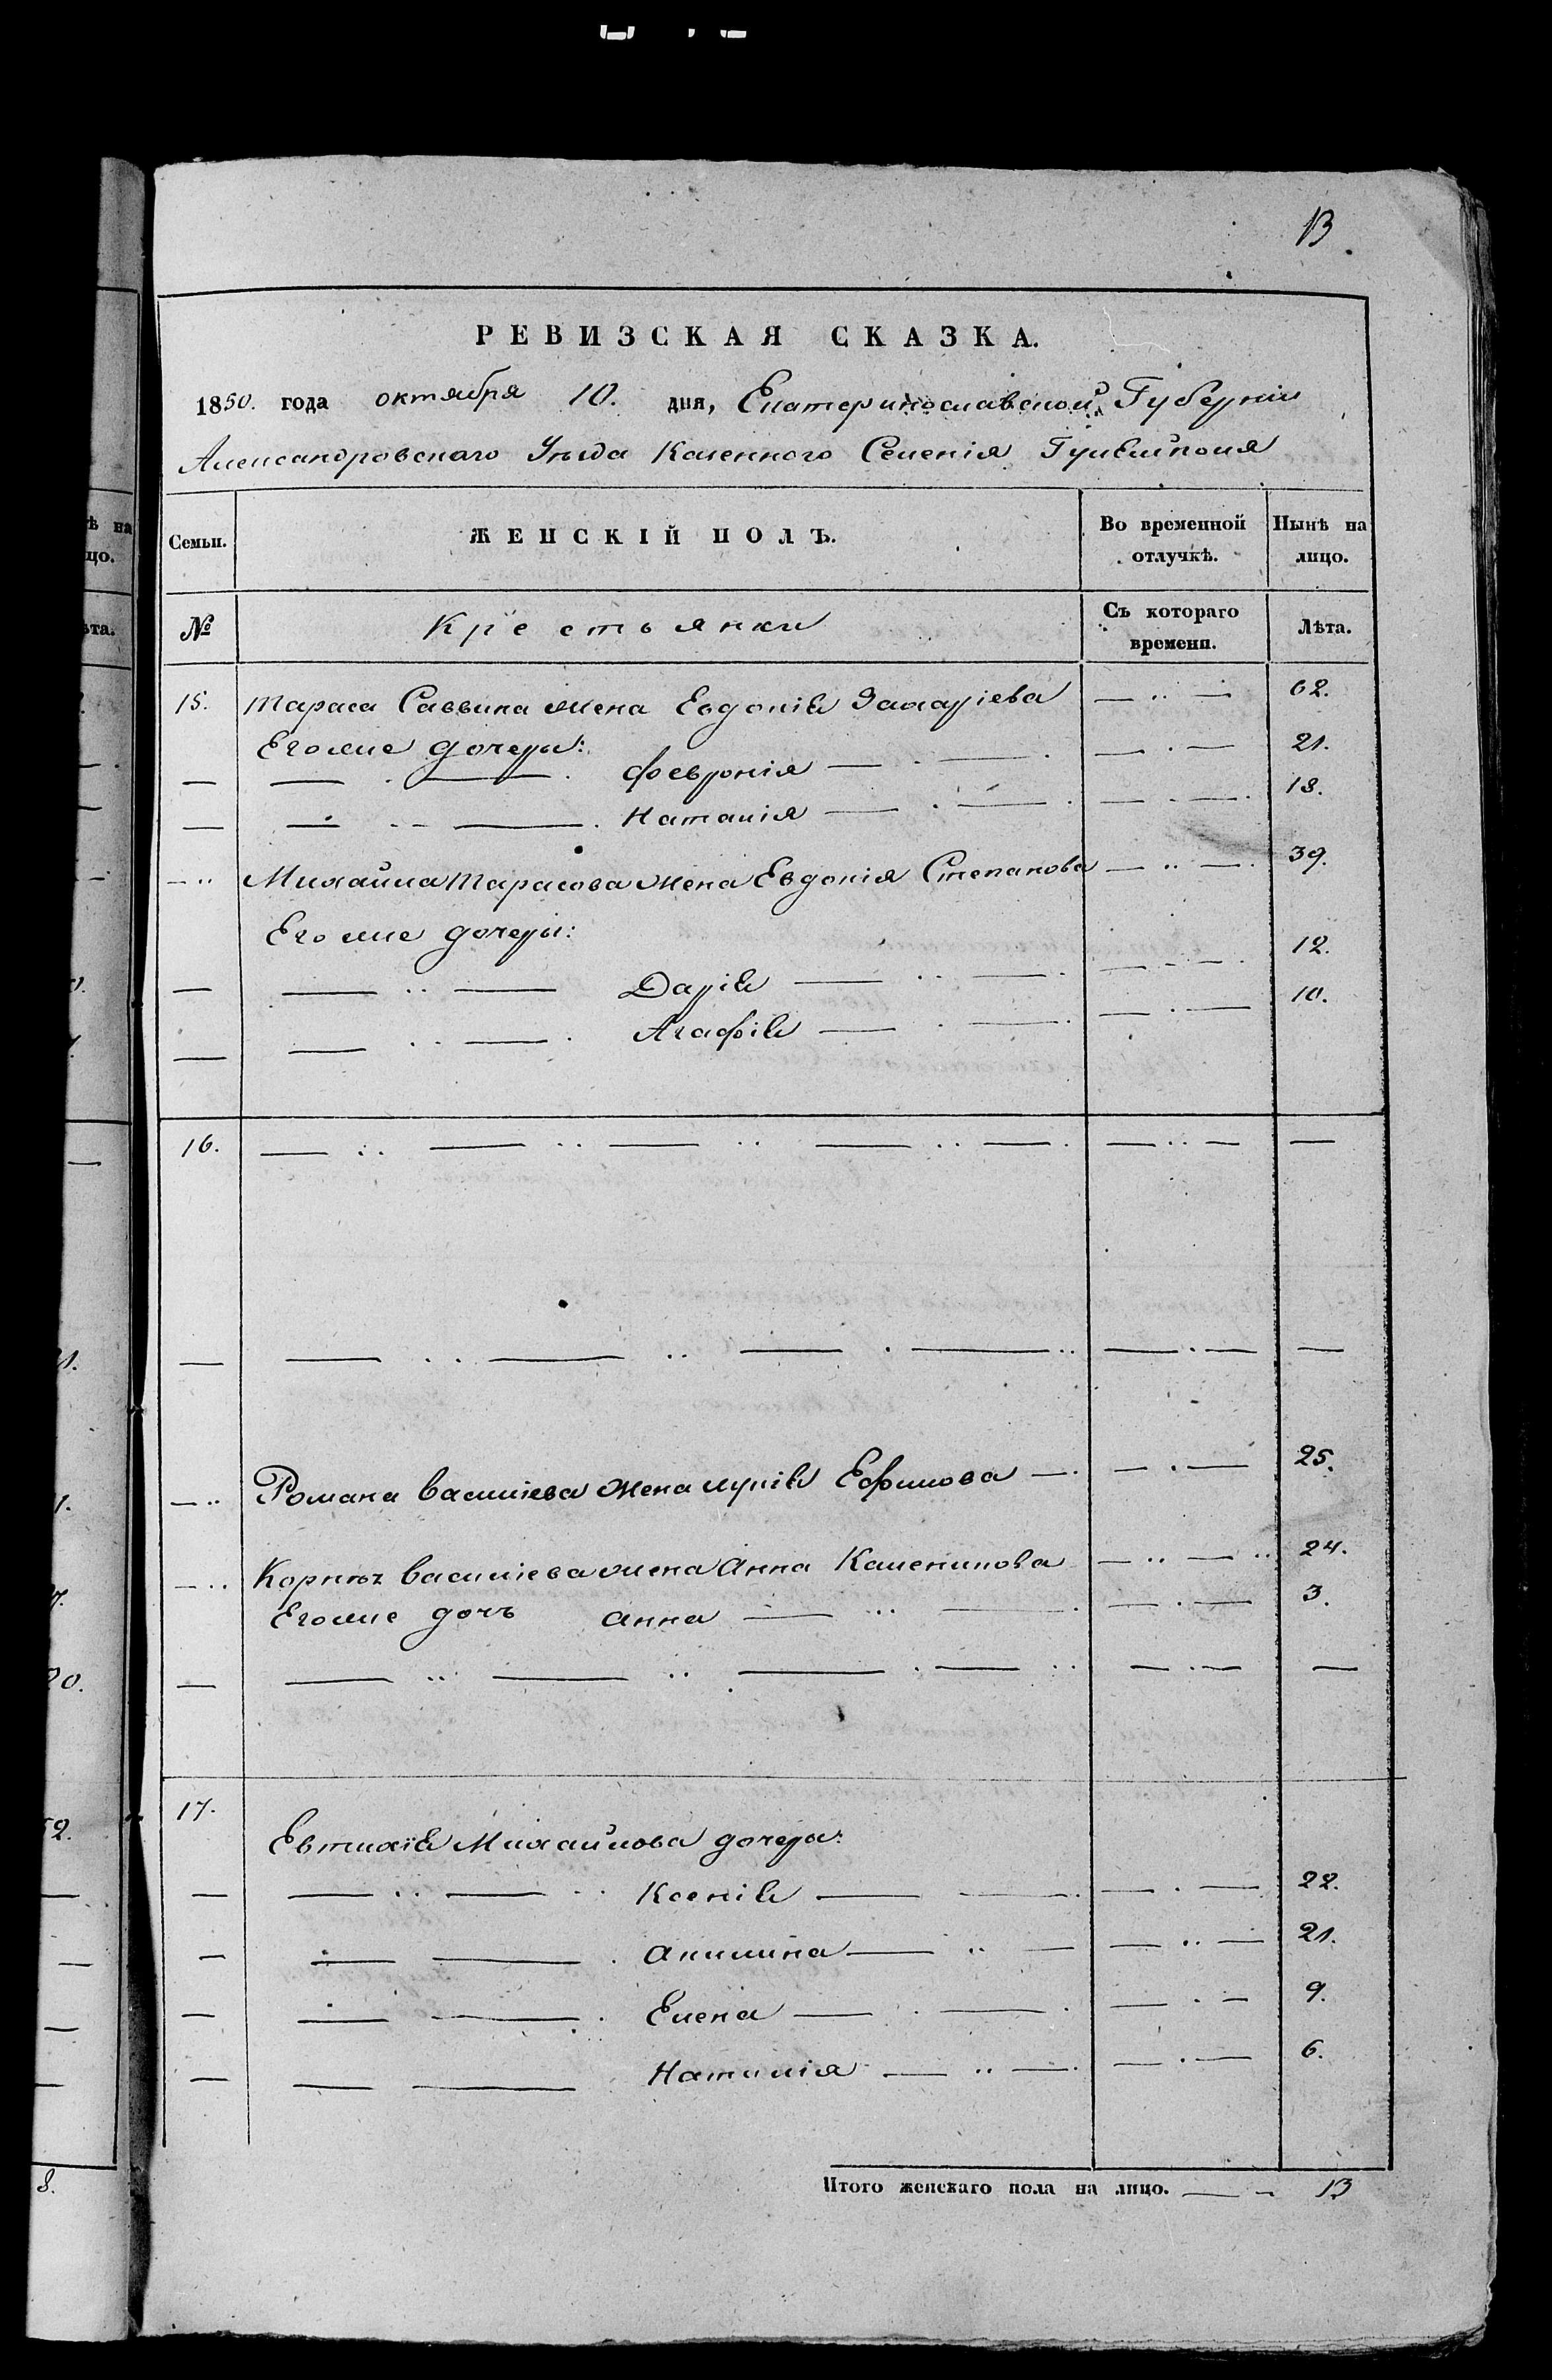 13
РЕВИЗСКАЯ СКАЗКА.
1850. года октября 10. дня, Екатеринославской Губерніи
Александровскаго Уѣзда Казенного Селенія Гуляйполя
Семьи. ЖЕНСКІЙ ПОЛЪ. Во временной отлучкѣ. Нынѣ на лицо.
№ Крестьянки Съ котораго времени. Лѣта.
15. Тараса Саввина жена Евдокія Захаріева — .. — 62.
Его же дочери:
— — . — . Феврония — . — . — . — 21.
— — .. — . Наталія — . — . — . — . 18.
— .. Михайла Тарасова жена Евдокія Степанова — .. — . 39.
Его же дочери:
— — .. — Дарія — .. — . — . — . 12.
— — .. — . Агафія — . — . — . — 10.
16. — .. — .. — .. — .. — . — .. — —
— — .. — .. — . — .. — . — —
— .. Романа Васильева жена Лукія Ефимова — . — . — 25.
— .. Корнѣя Васильева жена Анна Каленикова — .. — .. 24.
Его же дочь Анна — ... — . — . — 3.
— — .. — .. — . — .. — . — —
17.
Евтихія Михайлова дочери:
— — .. — .. Ксенія — — . — . — 22.
— — — . Акилина — .. — — .. — 21.
— — — . Елена — . — . — . — 9.
— — — Наталія — .. — . — . — 6.
Итого женскаго пола на лицо. — - 13
ѣ на
цо.
ѣта.